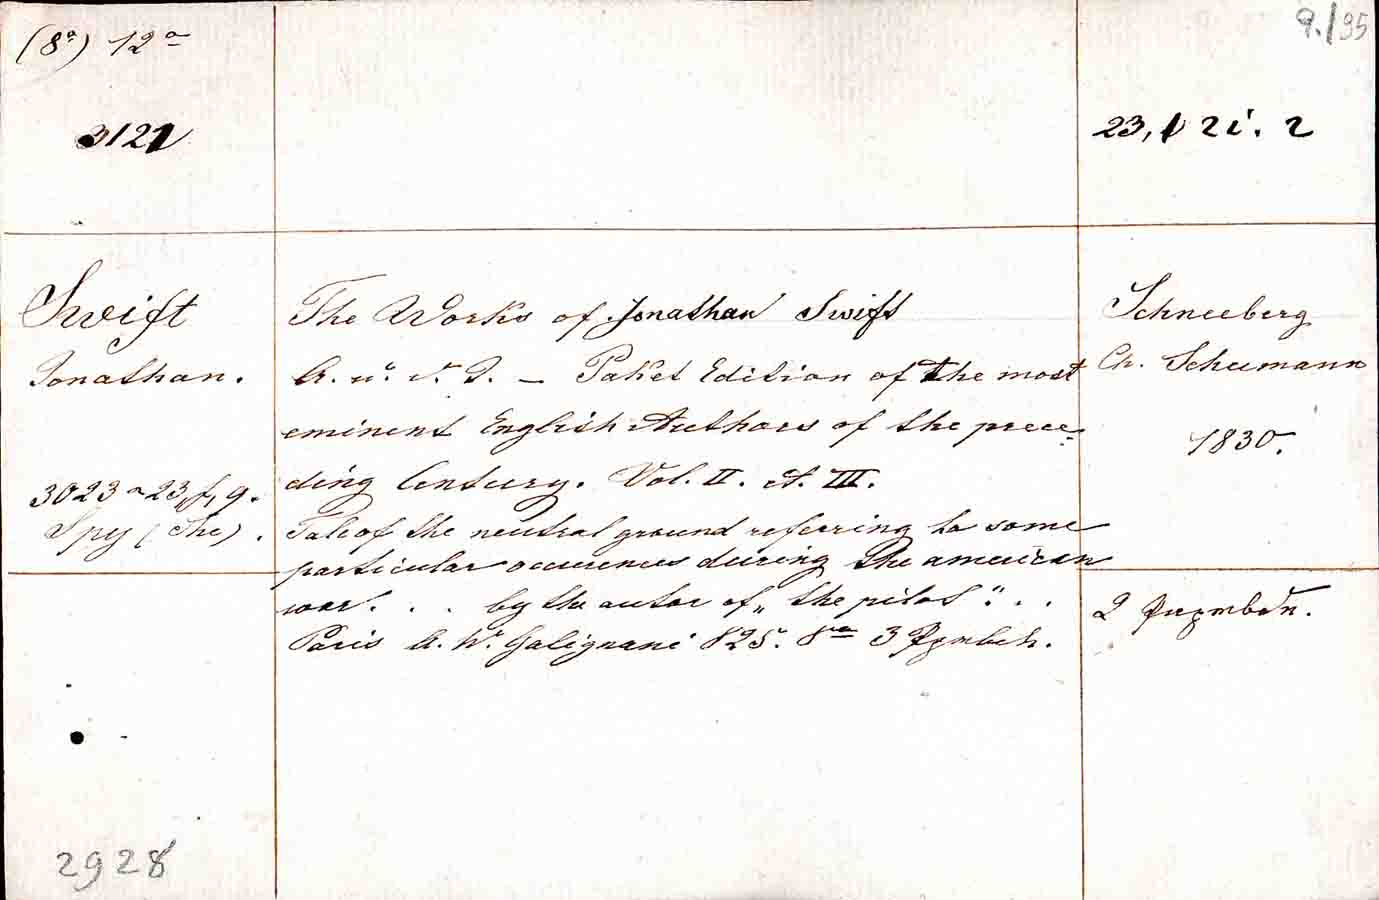 (8º) 12º
9./95
3121
23, 1 2 i. 2
Swift
Jonathan.
3023 ~ 23, f, 9.
Spy (The).
The Works of Jonathan Swift
— Paket Edition of the most
eminent English Authors of the prece=
ding Century. Vol. II. et III.
Tale of the neutral ground referring to some
particular occurences during the american
war. . . by the autor of „the pilot“. . .
Paris A. W. Galignani 825. 8º 3
Schneeberg
Ch. Schumann
1830.
2
2928